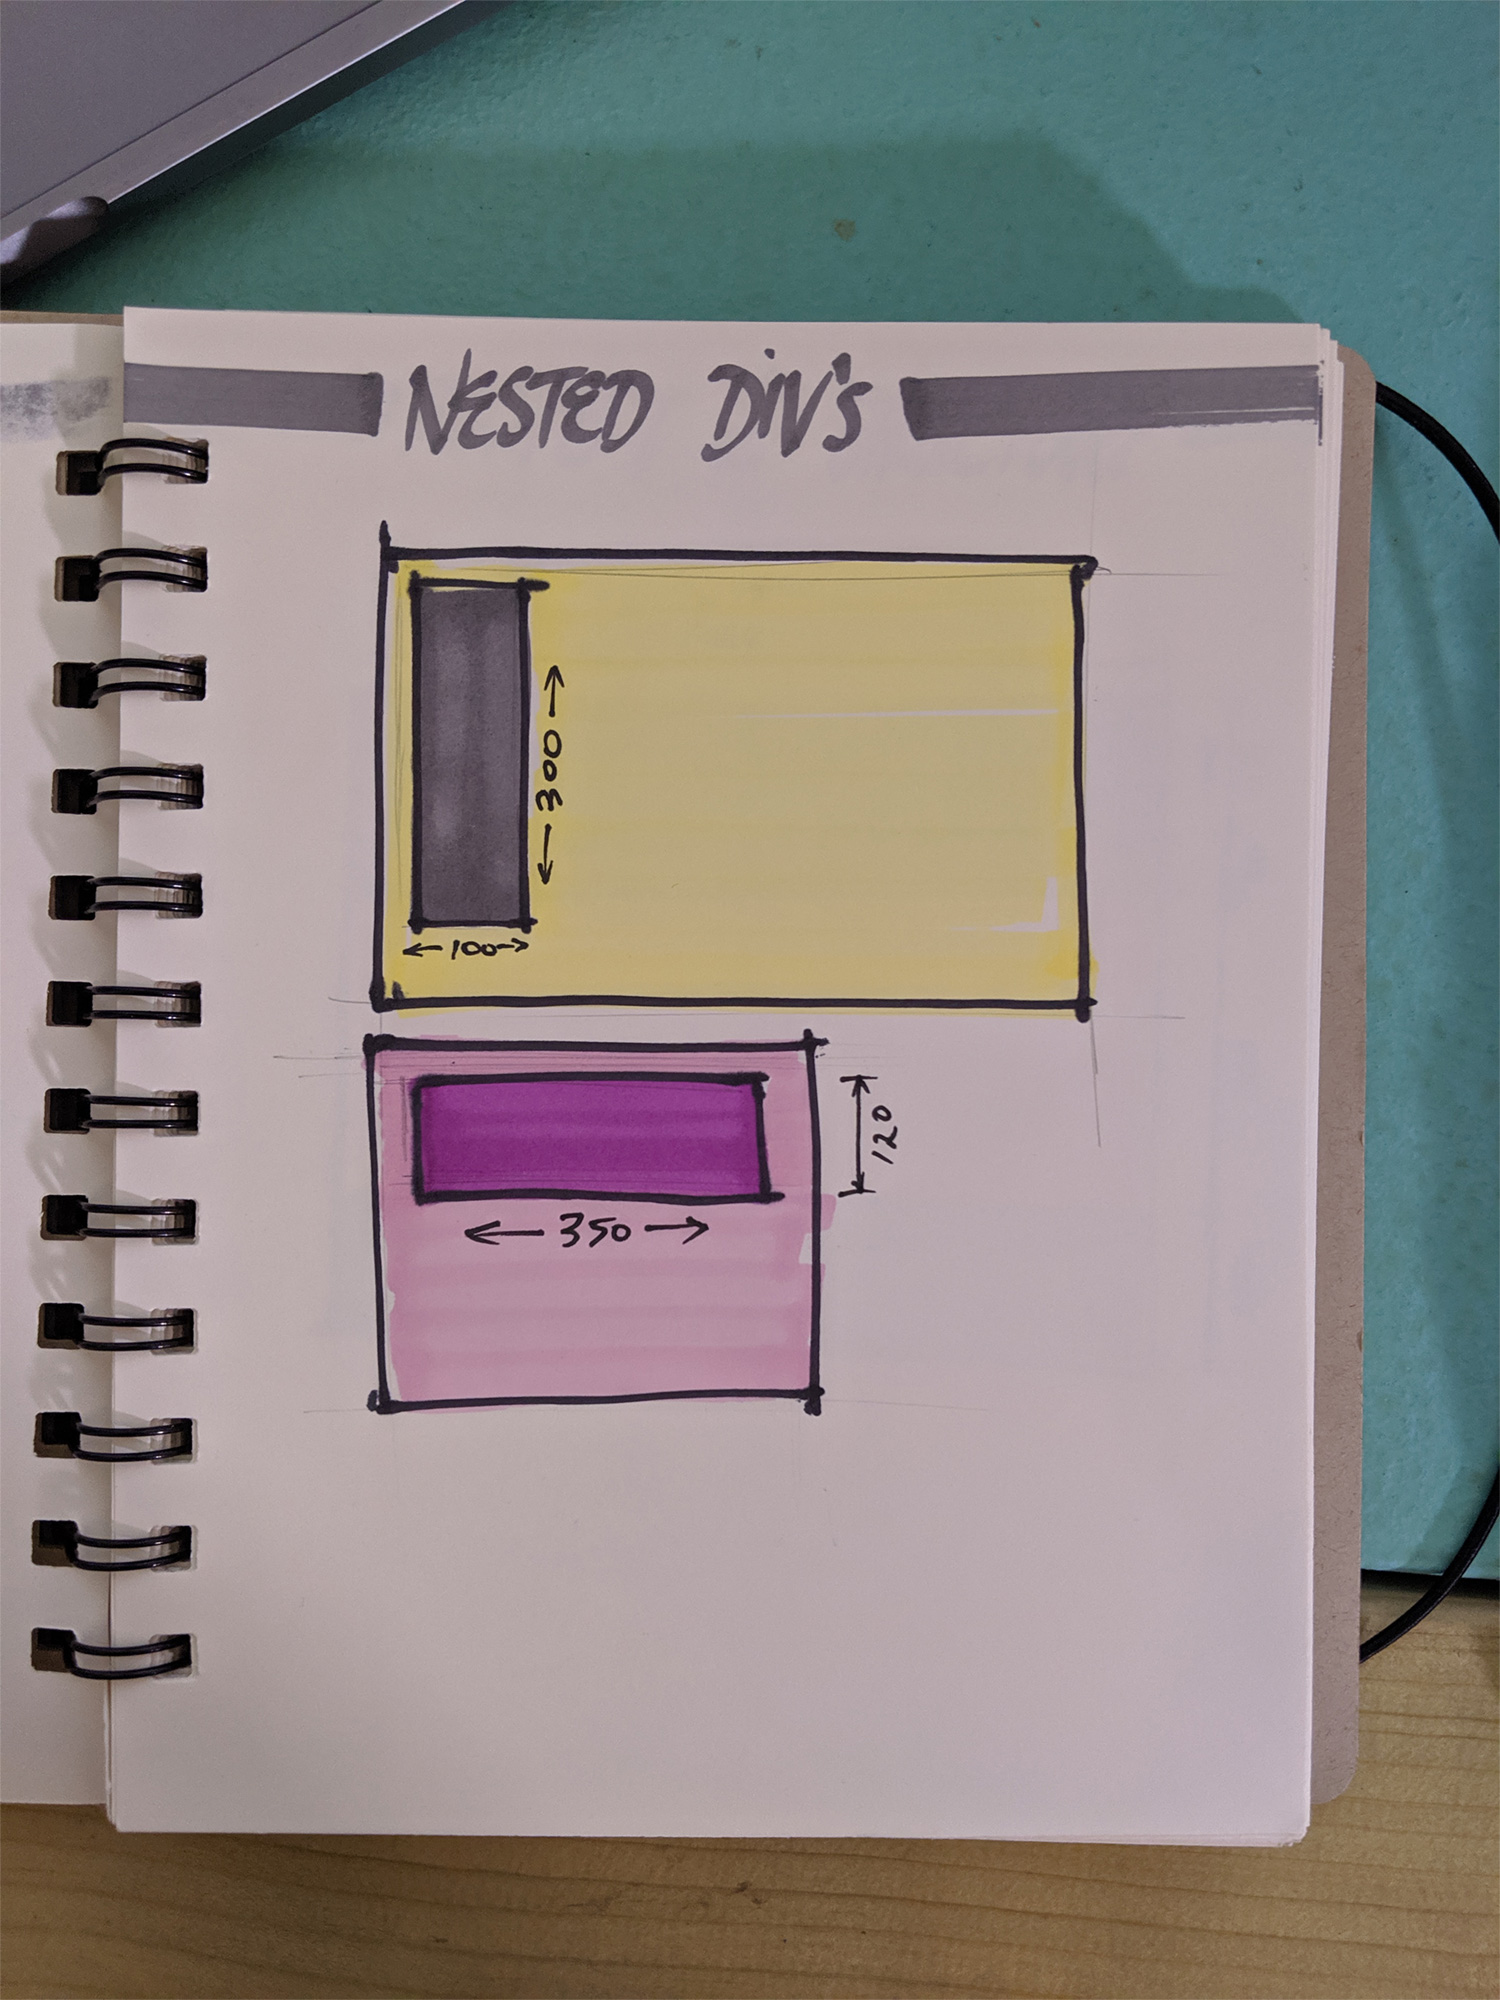 NESTED DIV'S
300
100
120
350